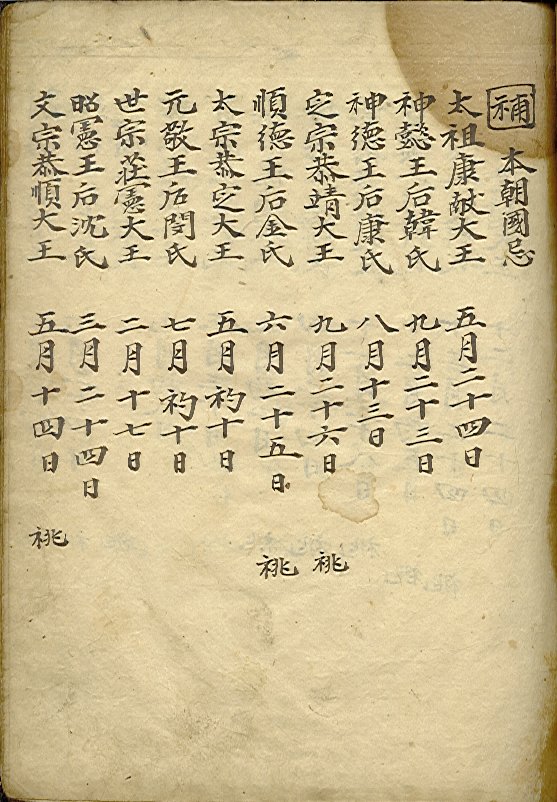 補 本朝國忌
太祖康献大王 五月二十四日
神懿王后韓氏 九月二十三日
神德王后康氏 八月十三日
定宗恭靖大王 九月二十六日 祧
順德王后金氏 六月二十五日 祧
太宗恭定大王 五月初十日
元敬王后閔氏 七月初十日
世宗莊憲大王 二月十七日
昭憲王后沈氏 三月二十四日
文宗恭順大王 五月十四日 祧